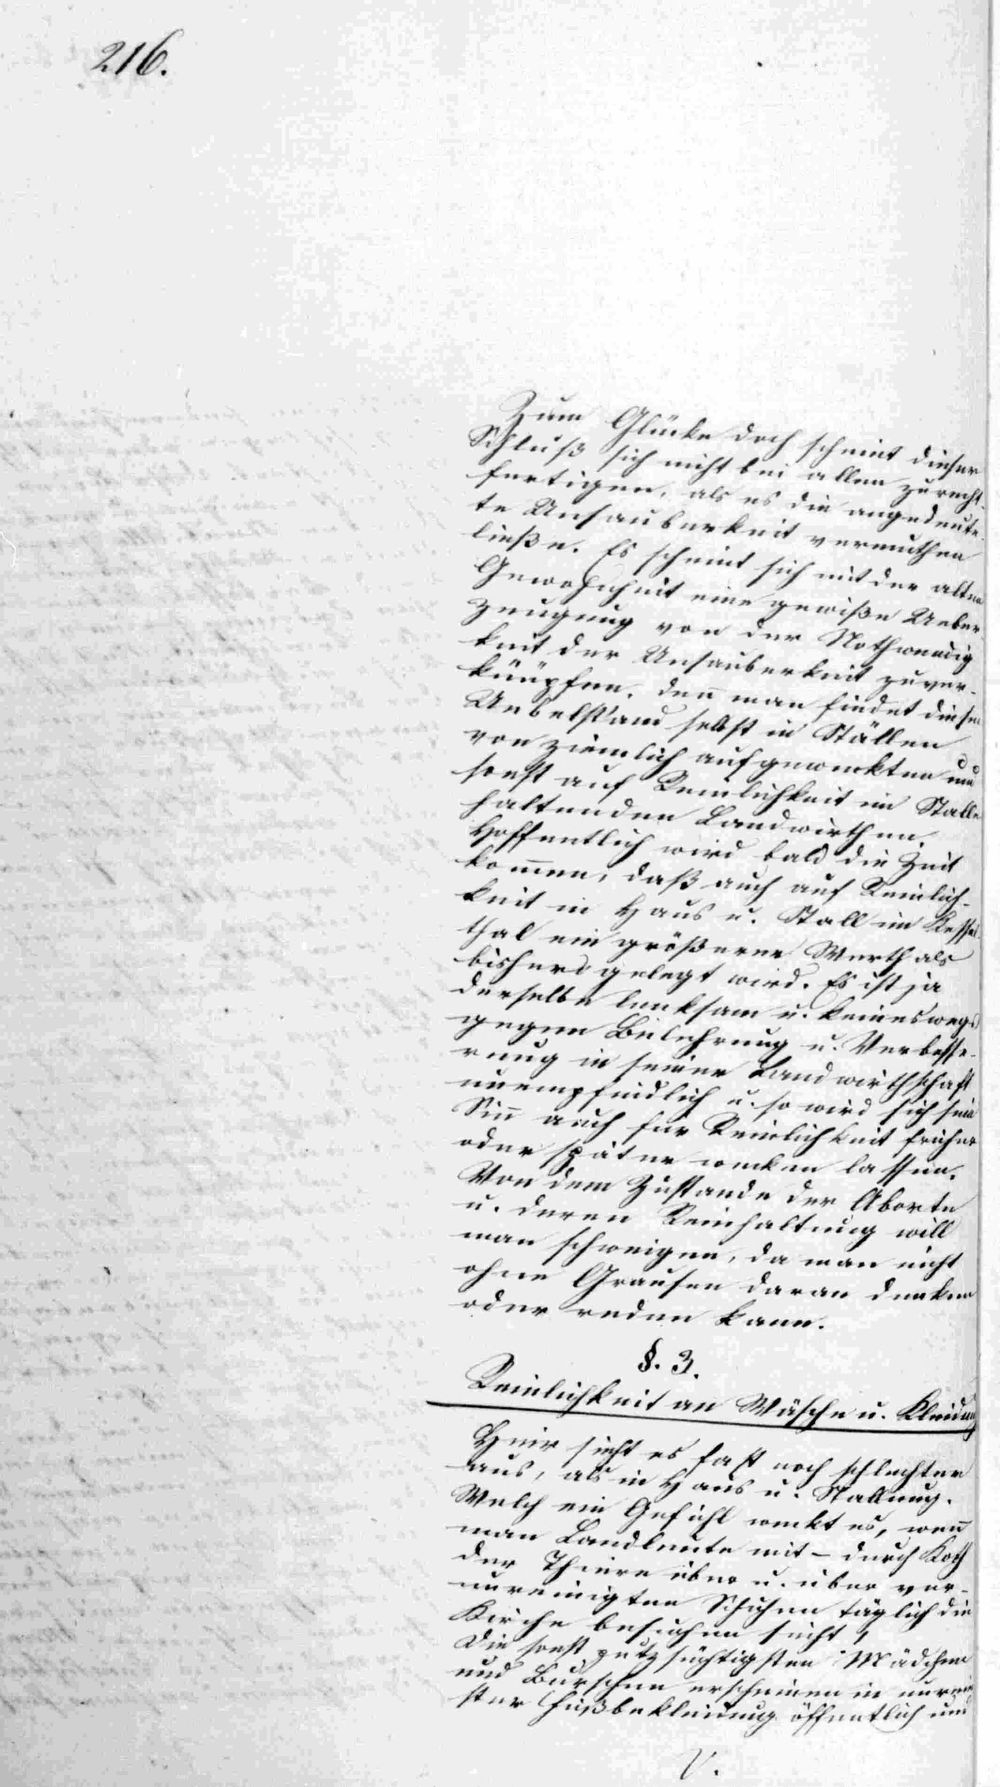 216.
Zum Glücke doch scheint dieser
Schluß sich nicht bei allen zu recht-
fertigen, als es die angedeute-
te Unsauberkeit vermuthen
ließe. Es scheint sich mit der alten
Gewohnheit eine gewiße Ueber-
zeugung von der Nothwendig
keit der Unsauberkeit zu ver-
knüpfen. den man findet diesen
Uebelstand selbst in Ställen
von ziemlich aufgeweckten und
sonst auf Reinlichkeit im Stalle
haltenden Landwirthen.
Hoffentlich wird bald die Zeit
kom̄en, daß auch auf Reinlich-
keit in Haus u. Stall im Kessel-
thal ein größerer Werth als
bishero gelegt wird. Es ist ja
derselbe lenksam u. keineswegs
gegen Belehrung u. Verbesse-
rung in seiner Landwirthschaft
unempfindlich u. so wird sich sein
Sin̄ auch für Reinlichkeit früher
oder später wecken lassen.
Von dem Zustande der Aborte
u. deren Reinhaltung will
man schweigen, da man nicht
ohne Grausen daran denken
oder reden kann.
§. 3.
Reinlichkeit an Wäsche u. Kleidung
Hier sieht es fast noch schlechter
aus, als in Haus u. Stallung.
Welch ein Gefühl weckt es, wen̄
man Landleute mit – durch Koth
der Thiere über u. über ver-
unreinigten Schuhen täglich die
Kirche besuchen sieht,
Die sonst putzsüchtigsten Mädchen
und Burschen erscheinen in unrein
ster Fußbekleidung öffentlich und
V.